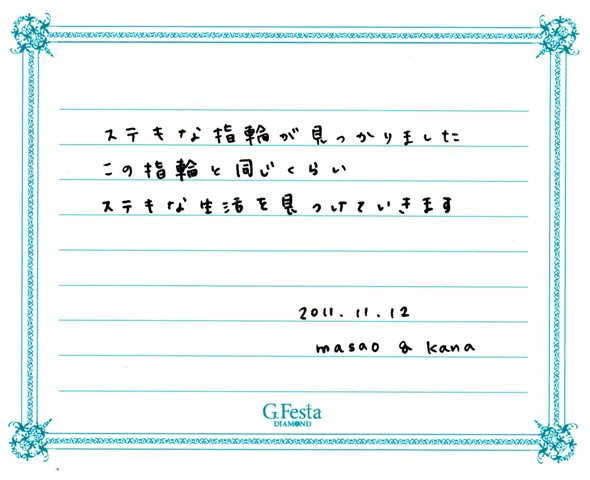 ステキな指輪が見つかりました
この指輪と同じくらい
ステキな生活を見つけていきます
2011.11.12
masao & kana
G.Festa
DIAMOND